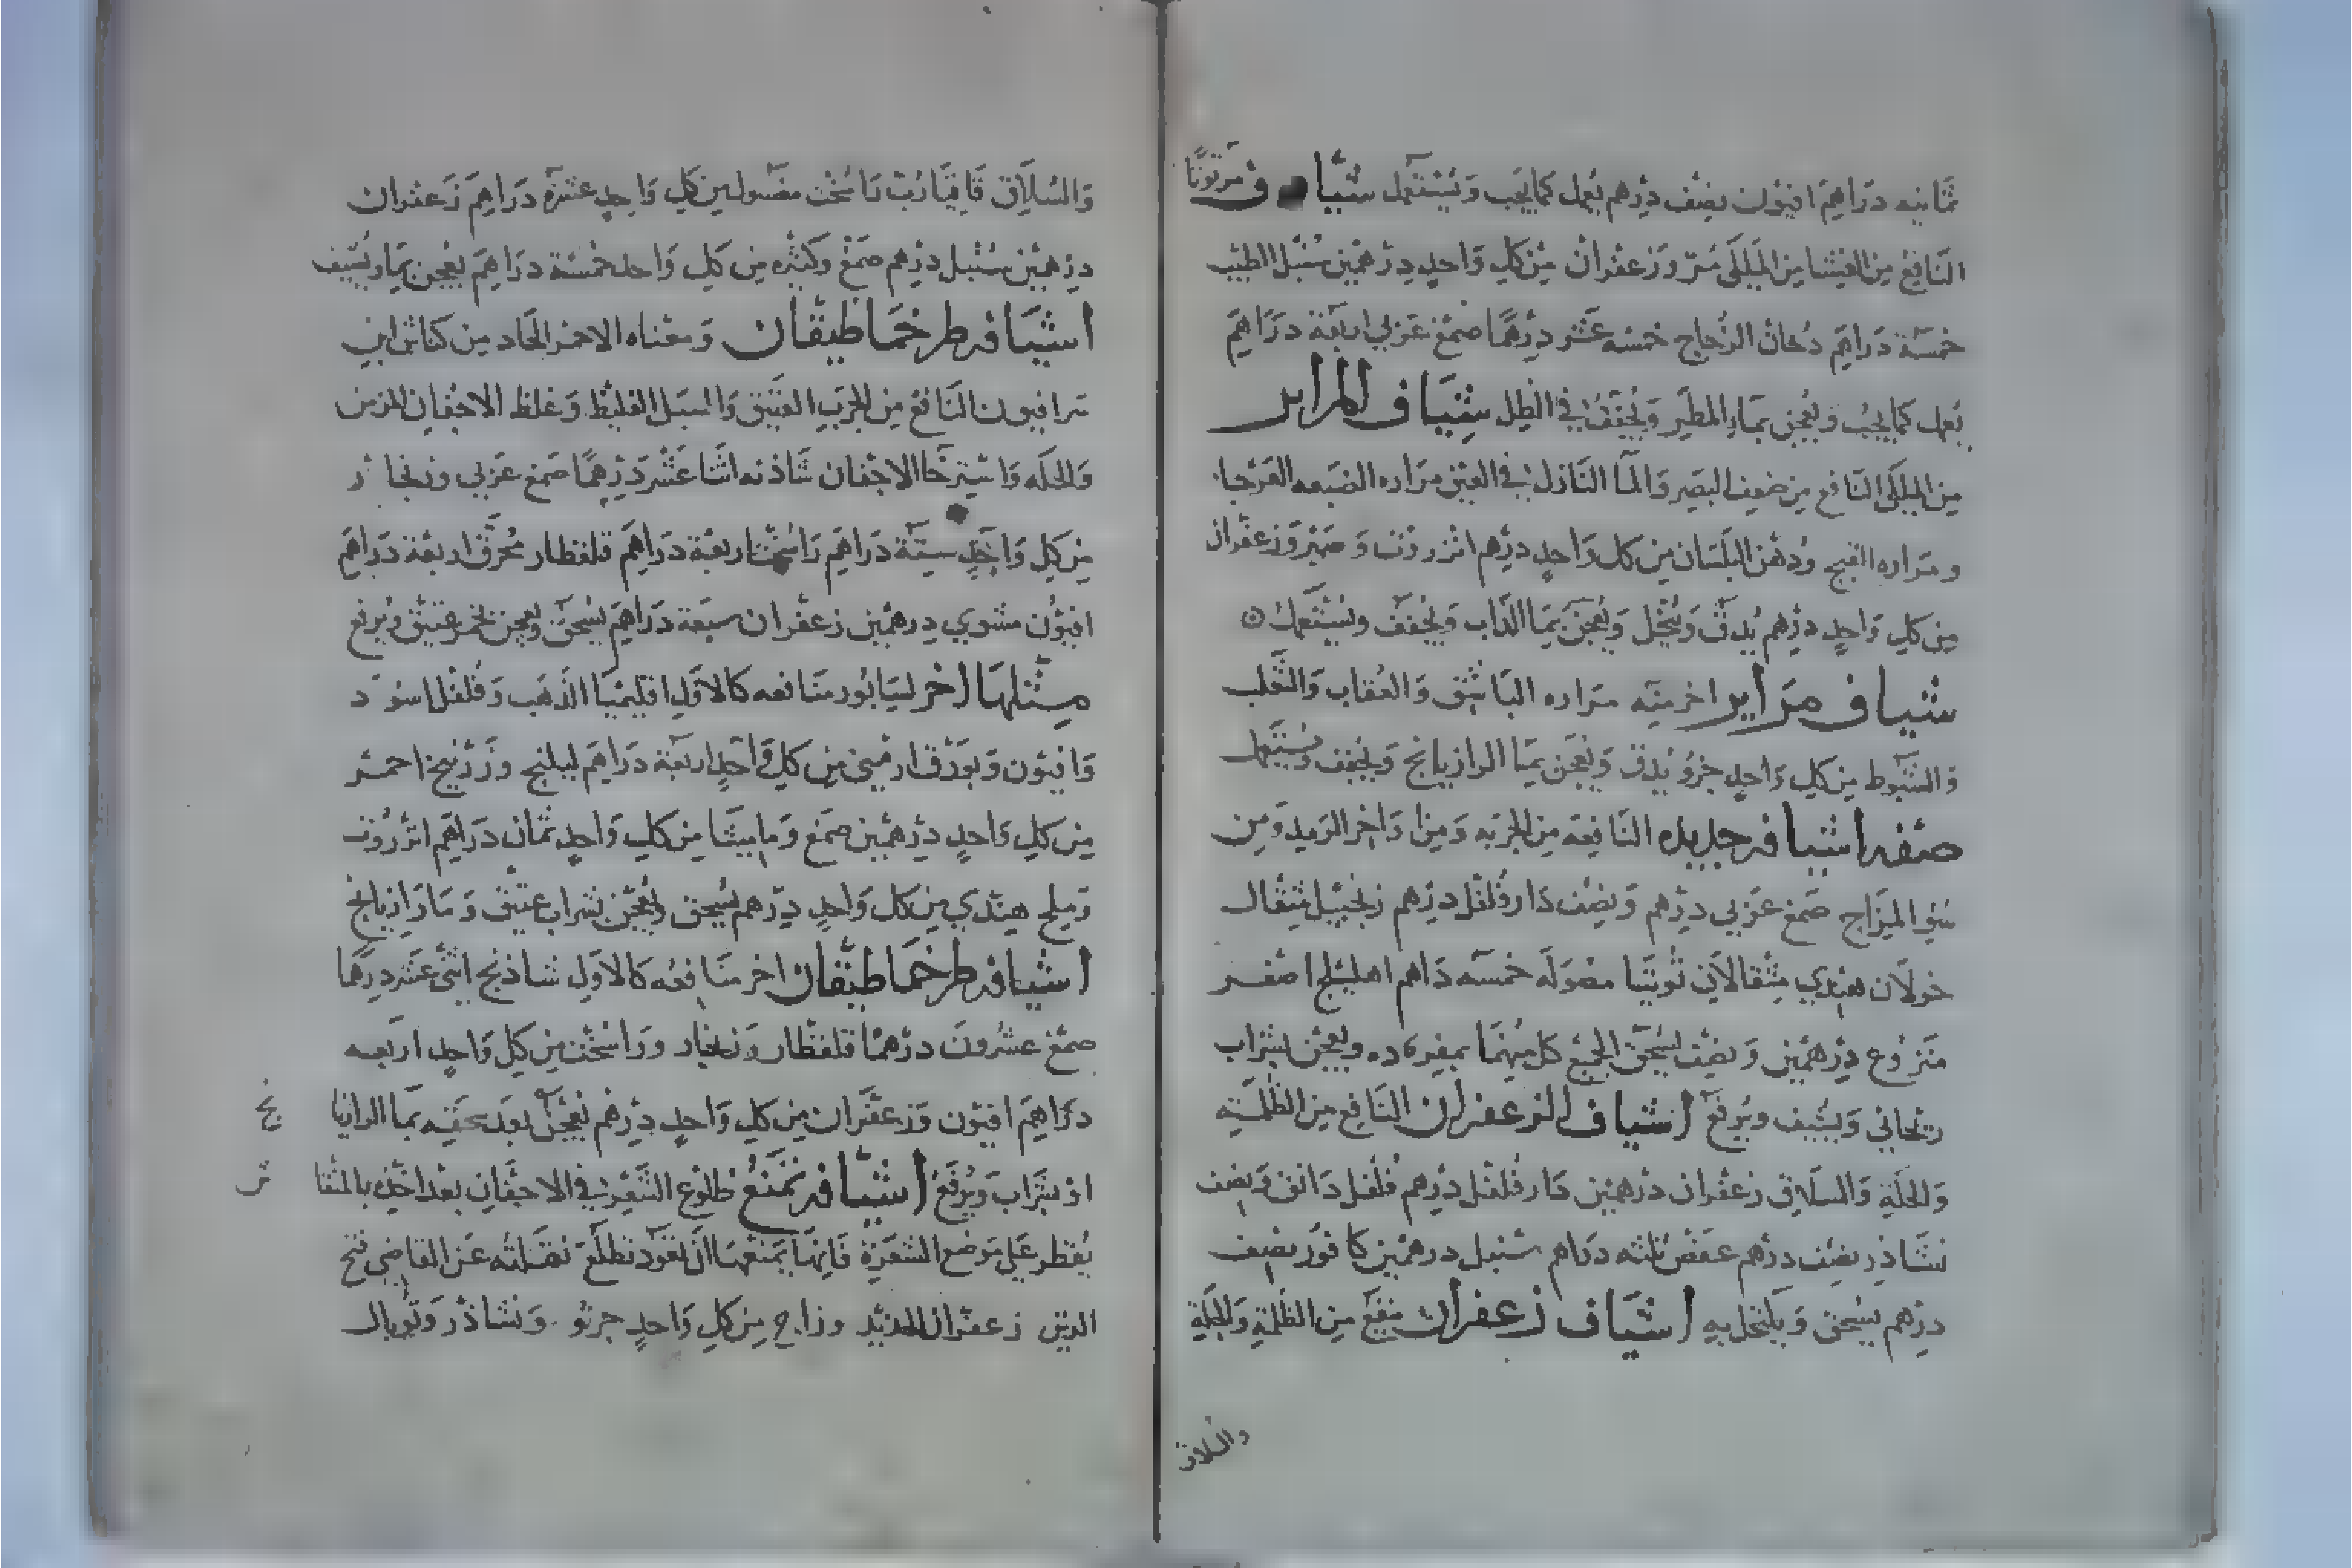 ثمانيه دراهم افيون نصف درهم يعمل كما يجب ويستعمل شياف
النافع من العشا من الملكى مر وزعفران من كل واحد درهمين سنبل الطيب
خمسة دراهم دخان الزجاج خمسه عشر درهما صمغ عربي اربعة دراهم
يعمل كما يجب ويعجن بماء المطر ويجفف في الظل شياف المراير
من الملكى النافع من ضعف البصر والما النازل في العين مراره الضبعه العرجا
ومراره القبج ودهن البلسان من كل واحد درهم انزروت وصبر وزعفران
من كل واحد درهم يدق وينخل ويعجن بما السذاب ويجفف ويستعمل
شياف مراير اخر منه مراره الباشق والعقاب والثعلب
والشبوط من كل واحد جزو يدق ويعجن بما الرازيانج ويجفف ويستعمل
صفه اشيافه جديده النافعه من الجربه ومن اواخر الرمد ومن
سو المزاج صمغ عربي درهم ونصف دارفلفل درهم زنجبيل مثقال
خولان هندي مثقالان توتيا مغسوله خمسه دراهم اهليلج اصفر
منزوع درهمين ونصف يسحق الجميع كل منهما بمفرده ويعجن بشراب
ريحاني ويشيف ويرفع اشياف الزعفران النافع من الظلمه
والحكة والسلاق زعفران درهمين دارفلفل درهم فلفل دانق ونصف
نشاذر نصف درهم عفص ثلثه دراهم سنبل درهمين كافور نصف
درهم يسحق ويكتحل به اشياف زعفران ينفع من الظلمة والحكة
والسلاق
والسلاق قاقيا راسخت مغسول من كل واحد عشرة دراهم زعفران
درهمين سنبل درهم صمغ وكثيره من كل واحد خمسة دراهم يعجن بما ويشيف
اشيافه طرخماطيقان ومعناه الاحمر الحاد من كناش ابن
سرافيون النافع من الجرب العتيق والسبل الغليظ وغلظ الاجفان المزمن
والحكه واسترخا الاجفان شاذنه اثنا عشر درهما صمغ عربي وزنجار
من كل واحد ستة دراهم راسخت اربعة دراهم قلقطار محرق اربعة دراهم
افيون مشوي درهمين زعفران سبعة دراهم يسحق ويعجن بخمر عتيق ويرفع
مثلها اخر لسابور منافعه كالاول اقليميا الذهب وفلفل اسود
وافيون وبورق ارمني من كل واحد اربعة دراهم ليلنج وزرنيخ احمر
من كل واحد درهمين صمغ وماميثا من كل واحد ثمان دراهم انزروت
وملح هندي من كل واحد درهم يسحق ويعجن بشراب عتيق وما رازيانج
اشيافه طرخماطيقان اخر منافعه كالاول شاذنج اثنى عشر درهما
صمغ عشرون درهما قلقطار وزنجار وراسخت من كل واحد اربعه
دراهم افيون وزعفران من كل واحد درهم يعجن بعد سحقه بما الرازيا نج
او بشراب ويرفع اشيافه تمنع طلوع الشعر في الاجفان بعد اخذه بالمنقا ش
يقطر على موضع الشعرة فانها تمنعها ان تعود تطلع نقلته عن القاضي فتح
الدين زعفران الحديد وزاج من كل واحد جزو ونشاذر وتوبال